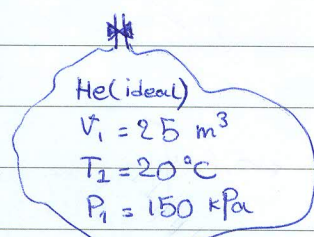 He(ideal)
V₁ = 25 m³
T₁ = 20°C
P₁ = 150 kPa